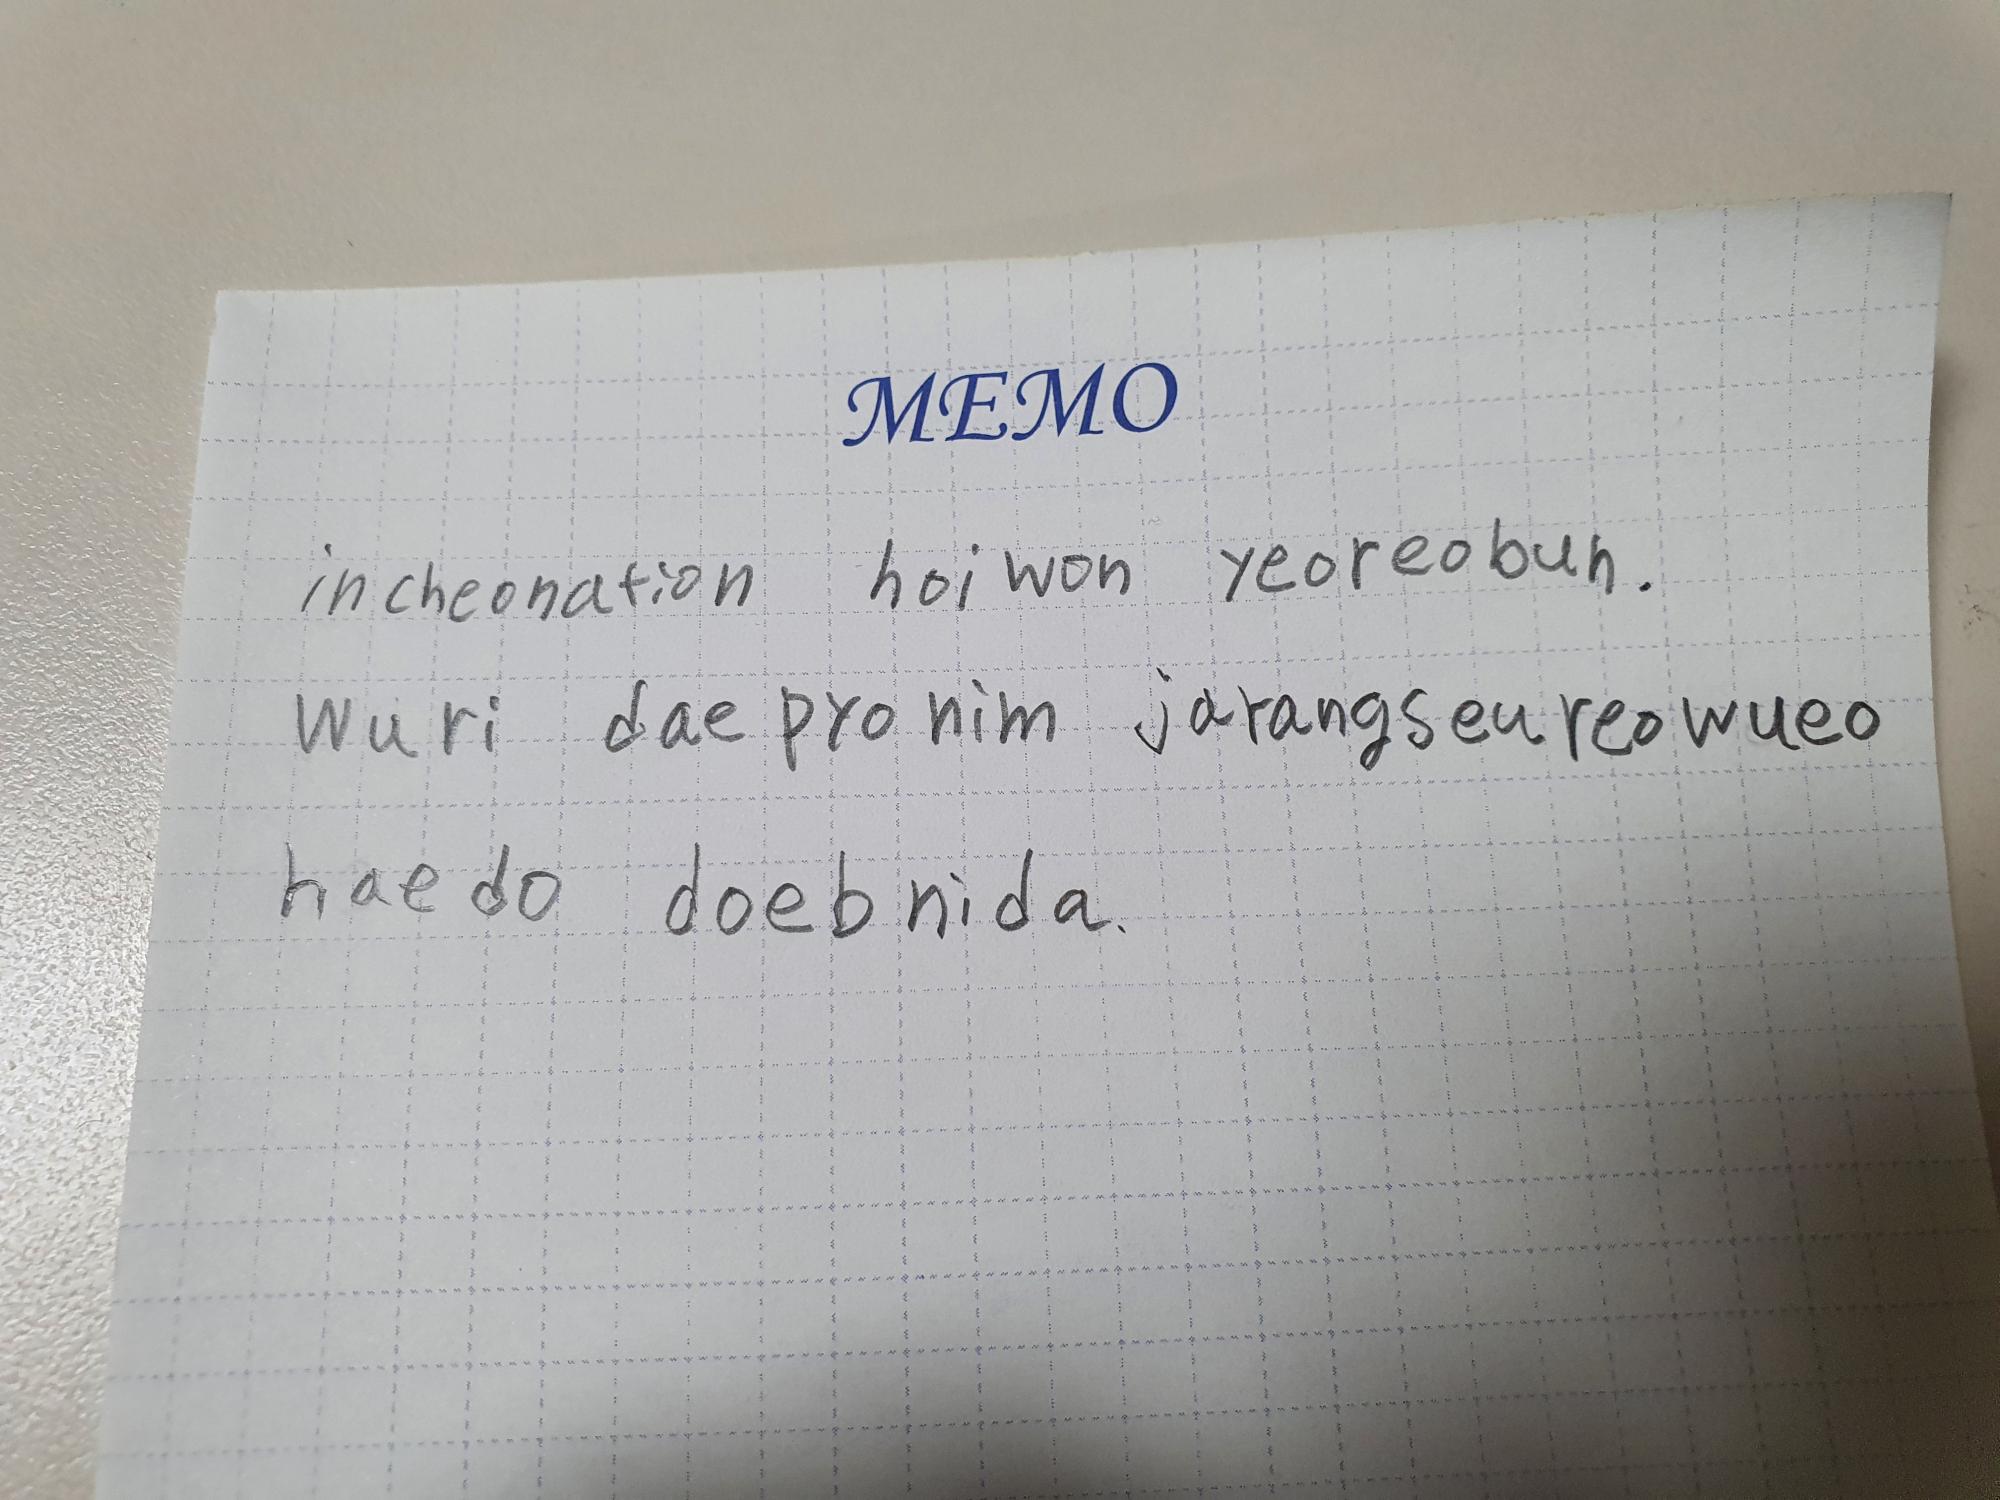 MEMO
incheonation hoiwon yeoreobun.
Wuri daepronim jarangseureowueo
haedo doebnida.